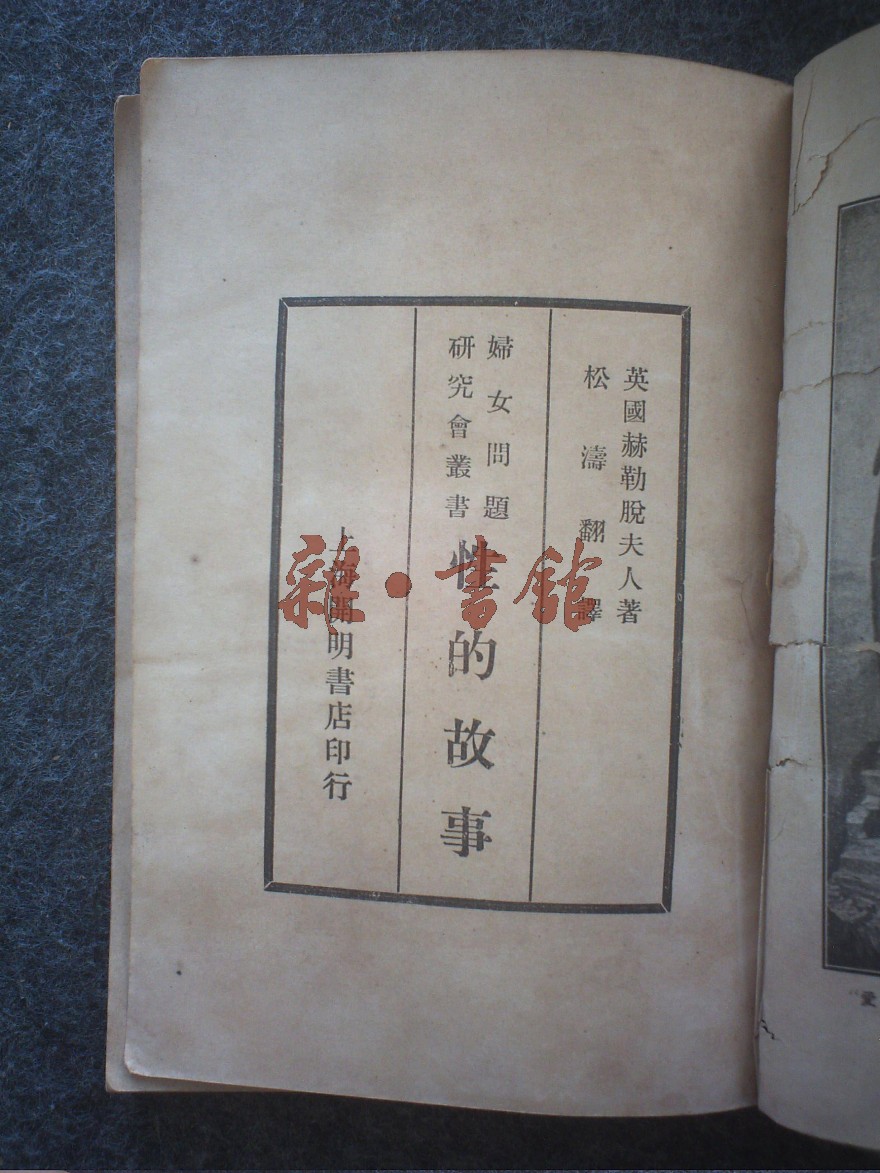 英國赫勒脫夫人著
松濤翻譯
婦女問題
研究會叢書
性的故事
上海開明書店印行
雜·書館
"愛